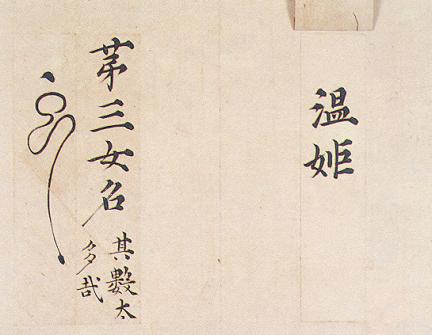 温姫
苐三女名
其數太
多哉